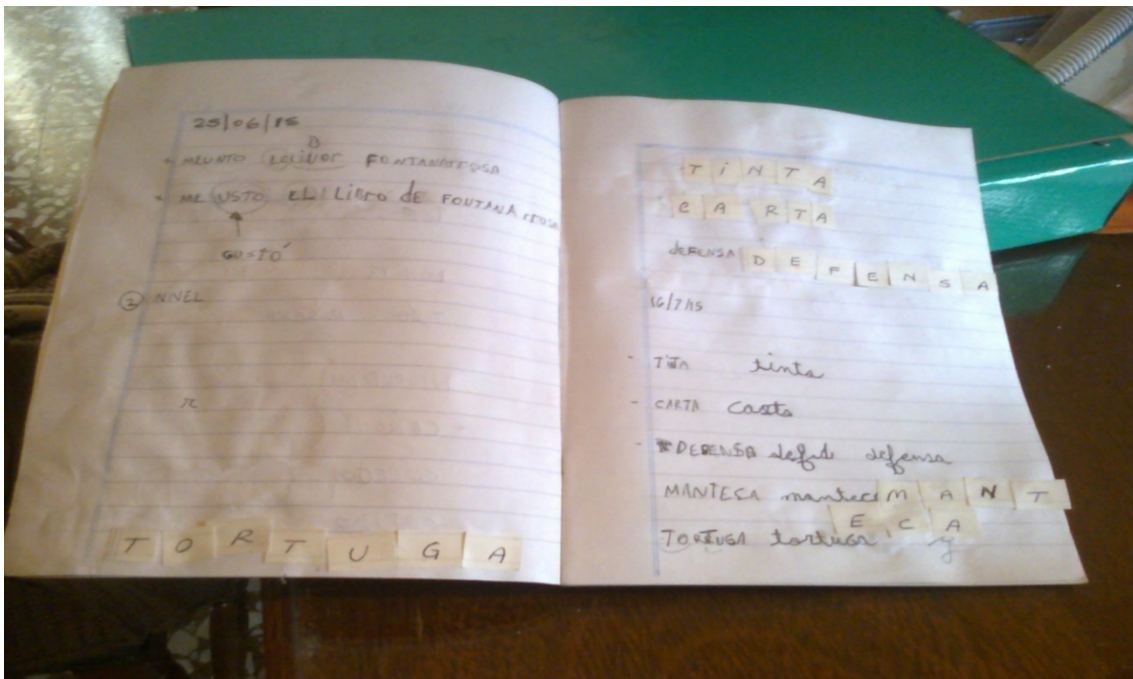 25/06/15
B
FONTANARROSA
ME USTO EL LIBRO dE FONTANARROSA
GUSTÓ
2 NIVEL
TORTUGA
TiNTA
CARTA
dEFENSA DEFENSA
16/7/15
- tinta
- CARTA carta
- defensa
MANTECA manteca MANT
ECA
TORTUGA tortuga y